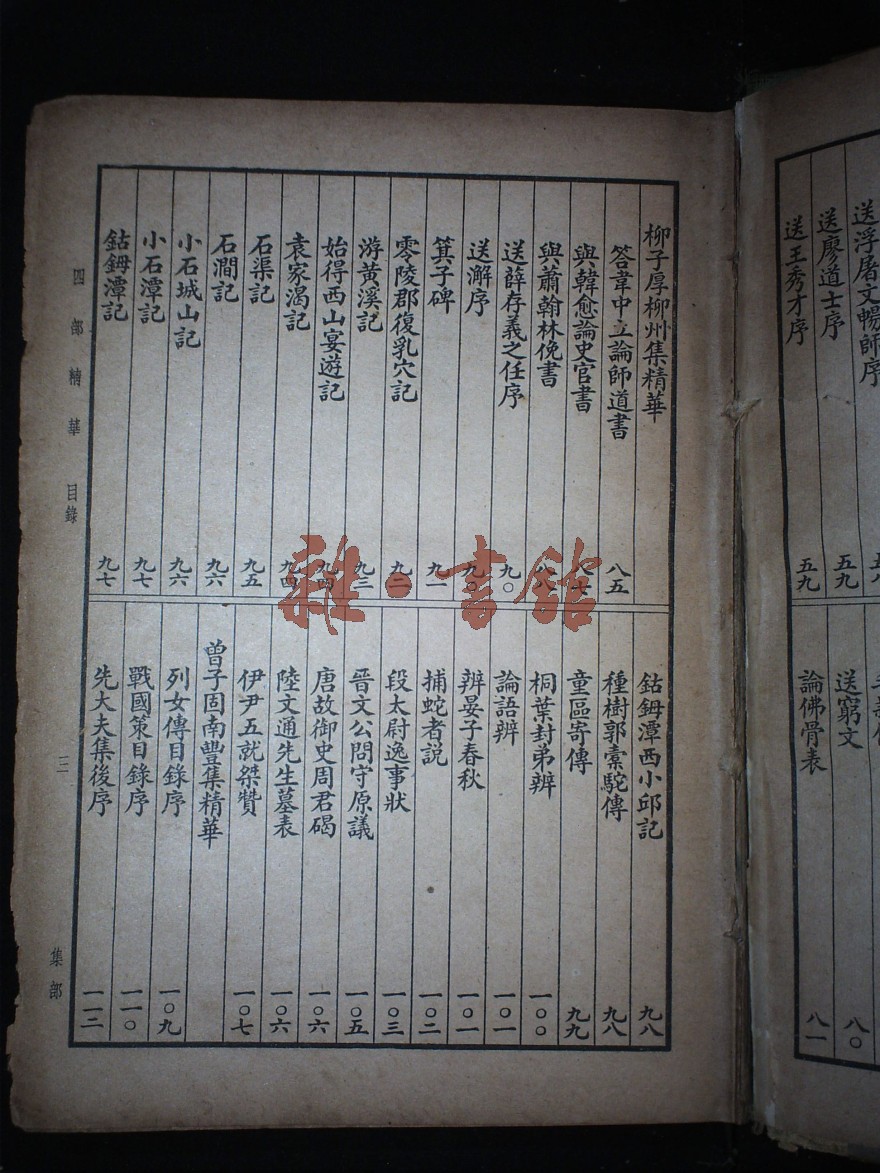 送浮屠文暢師序
送廖道士序 五九
送王秀才序 五九
送窮文 八〇
論佛骨表 八一
柳子厚柳州集精華
答韋中立論師道書 八五
與韓愈論史官書 八七
與蕭翰林俛書 八八
送薛存義之任序 九〇
送澥序 九〇
箕子碑 九一
零陵郡復乳穴記 九二
游黃溪記 九三
始得西山宴遊記 九四
袁家渴記 九四
石渠記 九五
石澗記 九六
小石城山記 九六
小石潭記 九七
鈷鉧潭記 九七
鈷鉧潭西小邱記 九八
種樹郭橐駝傳 九八
童區寄傳 九九
桐葉封弟辨 一〇〇
論語辨 一〇一
辨晏子春秋 一〇一
捕蛇者説 一〇二
段太尉逸事狀 一〇三
晉文公問守原議 一〇五
唐故御史周君碣 一〇六
陸文通先生墓表 一〇六
伊尹五就桀贊 一〇七
曾子固南豐集精華
列女傳目錄序 一〇九
戰國策目錄序 一一〇
先大夫集後序 一一二
四部精華 目錄 三 集部
雜·書館